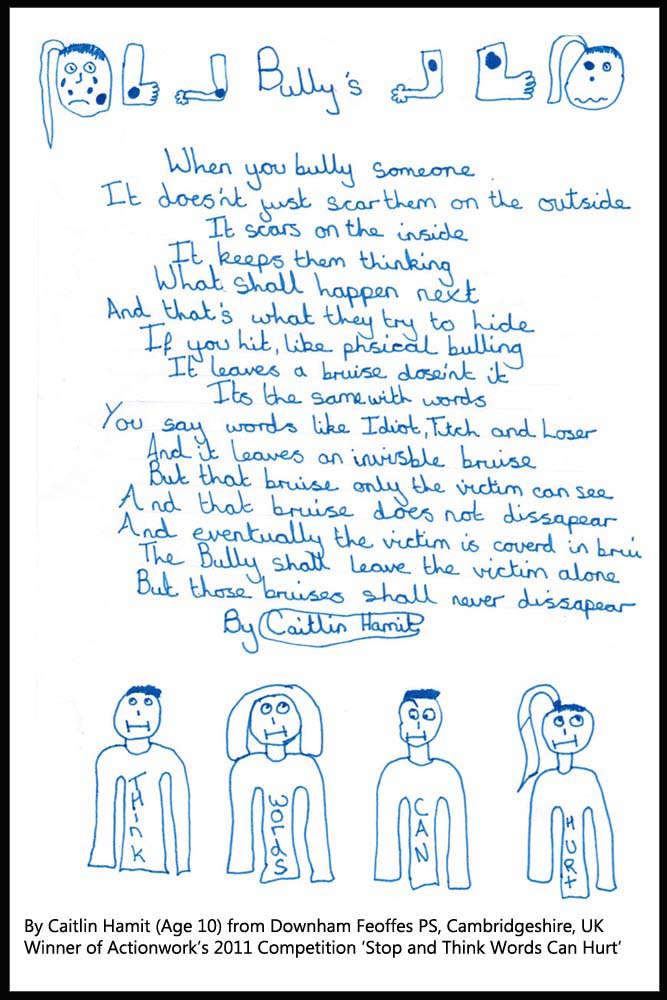 Bully's
When you bully someone
It does'nt just scar them on the outside
It scars on the inside
It keeps them thinking
What shall happen next
And that's what they try to hide
If you hit, like phsical bulling
It leaves a bruise dose'nt it
Its the same with words
You say words like Idiot, Titch and Loser
And it leaves an invisble bruise
But that bruise only the victim can see
And that bruise does not dissapear
And eventually the victim is coverd in brui
The Bully shall leave the victim alone
But those bruises shall never dissapear
By Caitlin Hamit
THink
Words
CAN
HURt
By Caitlin Hamit (Age 10) from Downham Feoffes PS, Cambridgeshire, UK
Winner of Actionwork's 2011 Competition 'Stop and Think Words Can Hurt'